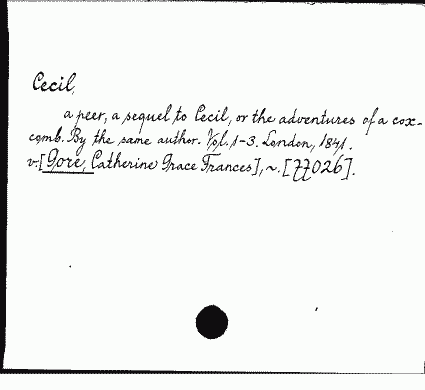 Cecil,
a peer, a sequel to Cecil, or the adventures of a cox-
comb. By the same author. Vol. 1-3. London, 1841.
v. [Gore, Catherine Grace Frances], ~. [77026].